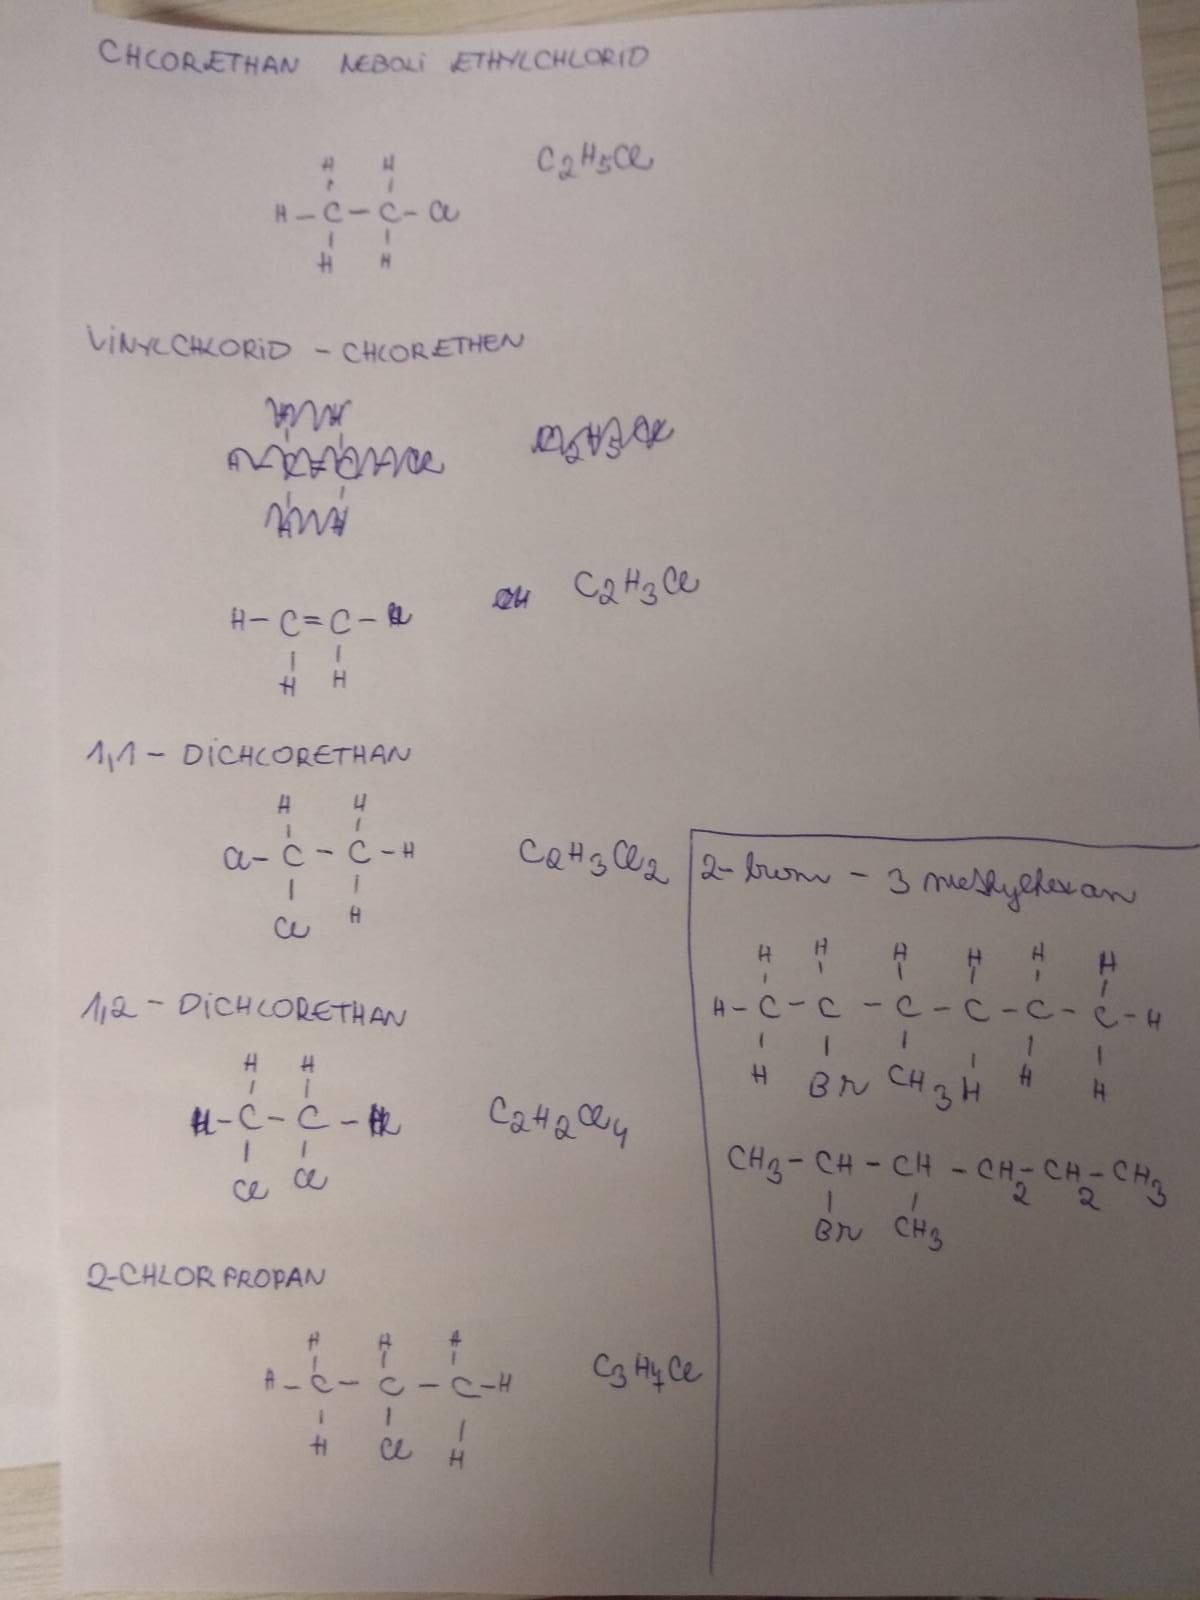 CHLORETHAN NEBOLI ETHYLCHLORID
H H
C2H5Cl
H - C - C - Cl
H H
VINYLCHLORID - CHLORETHEN
C2H3Cl
H - C = C - Cl
H H
1,1 - DICHLORETHAN
H H
Cl - C - C - H
C2H3Cl2
Cl H
1,2 - DICHLORETHAN
H H
C - C
C2H2Cl4
Cl Cl
2-CHLORPROPAN
H H H
H - C - C - C - H
C3H7Cl
H Cl H
2-brom - 3 methylhexan
H H H H H H
H - C - C - C - C - C - C - H
H Br CH3 H H H
CH3 - CH - CH - CH2 - CH2 - CH3
Br CH3